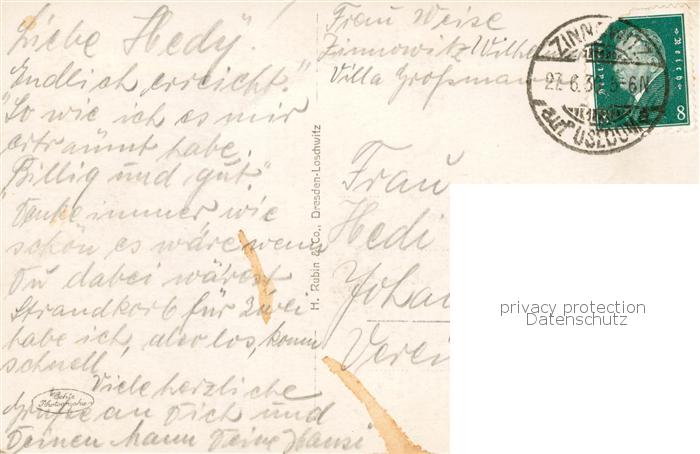 Liebe Hedy!
Endlich erreicht."
"So wie ich es mir
erträumt habe.
Billig und gut."
Denke immer, wie
schön es wäre wenn
Du dabei wärest
Strandkorb für zwei
habe ich, also los, komm
schnell,
Viele herzliche
Grüße an Dich und
Deinen Mann Deine Hansi
Echte
Photographie
H. Rubin & Co., Dresden-Loschwitz
Frau Weise
Zinnowitz Wilhelm
Villa Großmann
ZINNOWITZ
27.6.3
5-6N
auf USEDOM
8
Frau
Hedi
Joha
Verei
privacy protection
Datenschutz